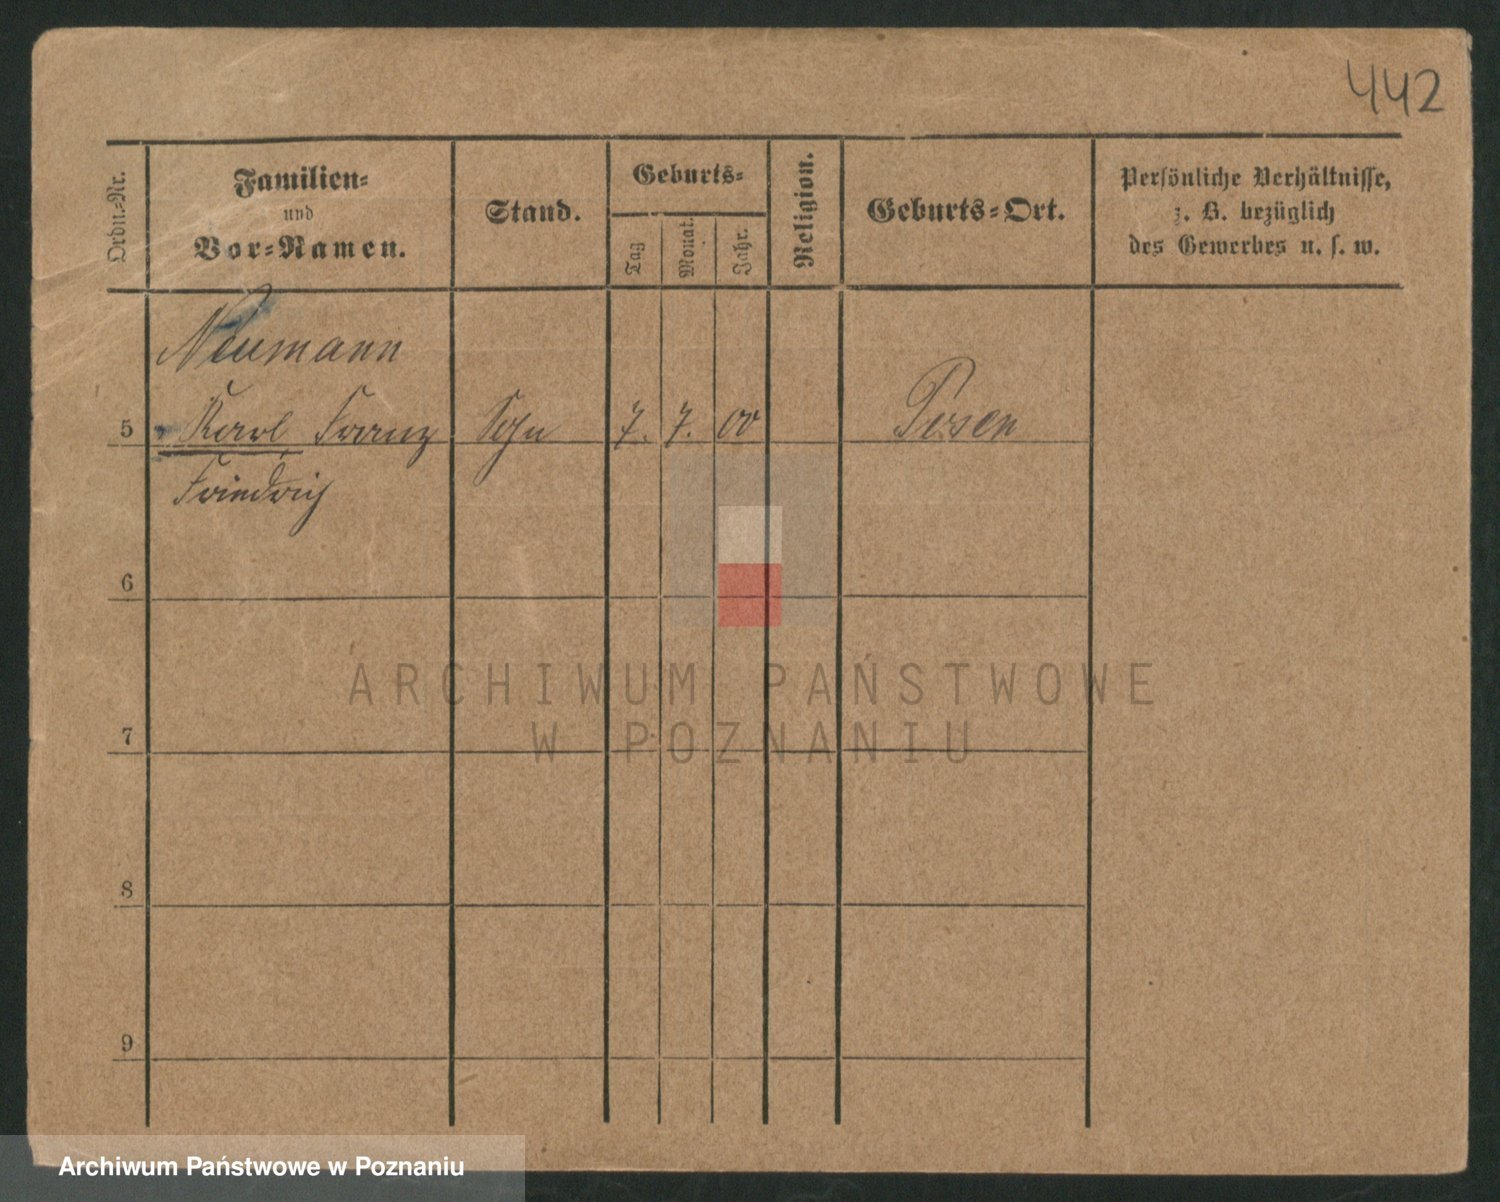 442
Ordn.-Nr.
Familien-
und
Vor-Namen.
Stand.
Geburts-
Tag
Monat.
Jahr.
Religion.
Geburts-Ort.
Persönliche Verhältnisse,
z. B. bezüglich
des Gewerbes u. s. w.
Neumann
5 Karl Franz Sohn 7. 7. 00 Posen
Friedrich
6
ARCHIWUM PAŃSTWOWE
W POZNANIU
7
8
9
Archiwum Państwowe w Poznaniu